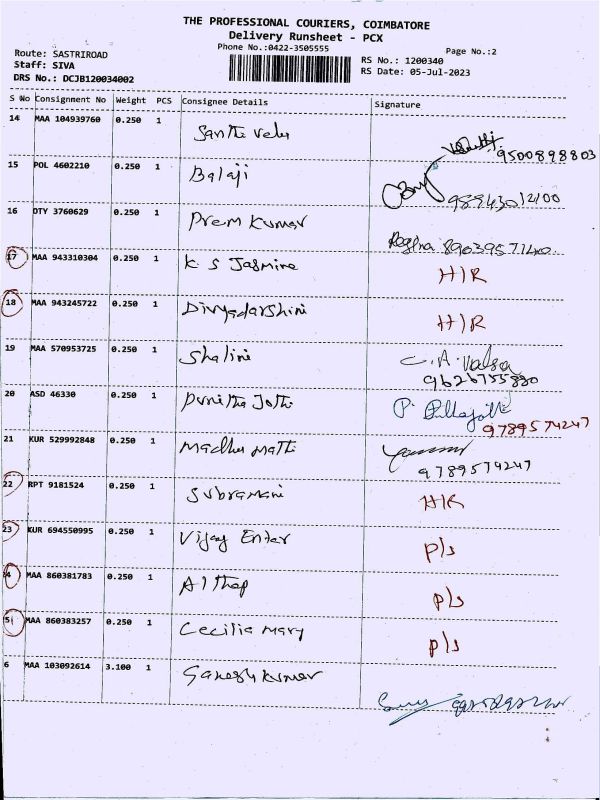 THE PROFESSIONAL COURIERS, COIMBATORE
Delivery Runsheet - PCX
Phone No.:0422-3505555
Page No.:2
Route: SASTRIROAD
Staff: SIVA
DRS No.: DCJB120034002
RS No.: 1200340
RS Date: 05-Jul-2023
S No Consignment No Weight PCS Consignee Details Signature
14 MAA 104939760 0.250 1 Santhi velu
9500898803
15 POL 4602210 0.250 1 Balaji
98943012100
16 DTY 3760629 0.250 1 Prem Kumar
Regina 8903957140
17 MAA 943310304 0.250 1 K S Jasmine H/R
18 MAA 943245722 0.250 1 Divyadarshini H/R
19 MAA 570953725 0.250 1 Shalini C. A. Valsa
9626755880
20 ASD 46330 0.250 1 Punitha Jothi P.
9789574247
21 KUR 529992848 0.250 1 Madhu Mathi
9789574247
22 RPT 9181524 0.250 1 Subramani H/R
23 KUR 694550995 0.250 1 Vijay Enter P/s
4 MAA 860381783 0.250 1 Althap P/s
5 MAA 860383257 0.250 1 Cecilia Mary P/s
6 MAA 103092614 3.100 1 Ganesh Kumar